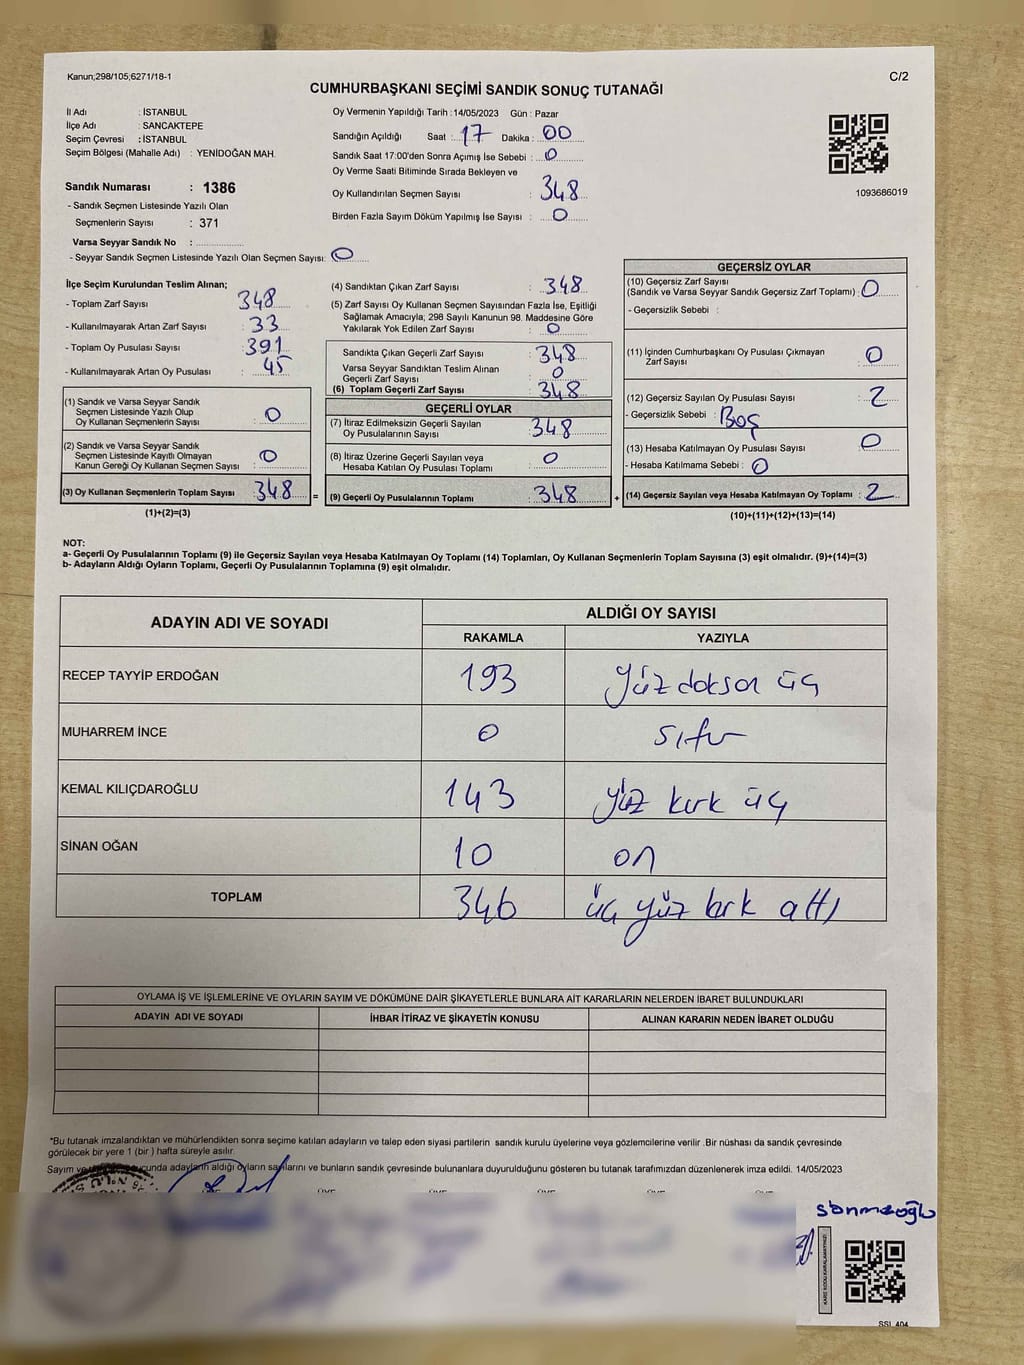 Kanun;298/105;6271/18-1
C/2
CUMHURBAŞKANI SEÇİMİ SANDIK SONUÇ TUTANAĞI
İl Adı : İSTANBUL
İlçe Adı : SANCAKTEPE
Seçim Çevresi : İSTANBUL
Seçim Bölgesi (Mahalle Adı) : YENİDOĞAN MAH.
Sandık Numarası : 1386
- Sandık Seçmen Listesinde Yazılı Olan
Seçmenlerin Sayısı : 371
Varsa Seyyar Sandık No : ..............
- Seyyar Sandık Seçmen Listesinde Yazılı Olan Seçmen Sayısı: 0
Oy Vermenin Yapıldığı Tarih : 14/05/2023 Gün : Pazar
Sandığın Açıldığı Saat : 17 Dakika : 00
Sandık Saat 17:00'den Sonra Açımış İse Sebebi : 0
Oy Verme Saati Bitiminde Sırada Bekleyen ve
Oy Kullandırılan Seçmen Sayısı : 348
Birden Fazla Sayım Döküm Yapılmış İse Sayısı : 0
1093686019
İlçe Seçim Kurulundan Teslim Alınan;
- Toplam Zarf Sayısı : 348
- Kullanılmayarak Artan Zarf Sayısı : 33
- Toplam Oy Pusulası Sayısı : 391
- Kullanılmayarak Artan Oy Pusulası : 45
(1) Sandık ve Varsa Seyyar Sandık
Seçmen Listesinde Yazılı Olup
Oy Kullanan Seçmenlerin Sayısı : 0
(2) Sandık ve Varsa Seyyar Sandık
Seçmen Listesinde Kayıtlı Olmayan
Kanun Gereği Oy Kullanan Seçmen Sayısı : 0
(3) Oy Kullanan Seçmenlerin Toplam Sayısı : 348 =
(1)+(2)=(3)
(4) Sandıktan Çıkan Zarf Sayısı : 348
(5) Zarf Sayısı Oy Kullanan Seçmen Sayısından Fazla İse, Eşitliği
Sağlamak Amacıyla; 298 Sayılı Kanunun 98. Maddesine Göre
Yakılarak Yok Edilen Zarf Sayısı : 0
Sandıkta Çıkan Geçerli Zarf Sayısı : 348
Varsa Seyyar Sandıktan Teslim Alınan
Geçerli Zarf Sayısı : 0
(6) Toplam Geçerli Zarf Sayısı : 348
GEÇERLİ OYLAR
(7) İtiraz Edilmeksizin Geçerli Sayılan
Oy Pusulalarının Sayısı : 348
(8) İtiraz Üzerine Geçerli Sayılan veya
Hesaba Katılan Oy Pusulası Toplamı : 0
(9) Geçerli Oy Pusulalarının Toplamı : 348 +
GEÇERSİZ OYLAR
(10) Geçersiz Zarf Sayısı
(Sandık ve Varsa Seyyar Sandık Geçersiz Zarf Toplamı) : 0
- Geçersizlik Sebebi :
(11) İçinden Cumhurbaşkanı Oy Pusulası Çıkmayan
Zarf Sayısı : 0
(12) Geçersiz Sayılan Oy Pusulası Sayısı : 2
- Geçersizlik Sebebi : Boş
(13) Hesaba Katılmayan Oy Pusulası Sayısı : 0
- Hesaba Katılmama Sebebi : 0
(14) Geçersiz Sayılan veya Hesaba Katılmayan Oy Toplamı : 2
(10)+(11)+(12)+(13)=(14)
NOT:
a- Geçerli Oy Pusulalarının Toplamı (9) ile Geçersiz Sayılan veya Hesaba Katılmayan Oy Toplamı (14) Toplamları, Oy Kullanan Seçmenlerin Toplam Sayısına (3) eşit olmalıdır. (9)+(14)=(3)
b- Adayların Aldığı Oyların Toplamı, Geçerli Oy Pusulalarının Toplamına (9) eşit olmalıdır.
ADAYIN ADI VE SOYADI ALDIĞI OY SAYISI
RAKAMLA YAZIYLA
RECEP TAYYİP ERDOĞAN 193 yüz doksan üç
MUHARREM İNCE 0 sıfır
KEMAL KILIÇDAROĞLU 143 yüz kırk üç
SİNAN OĞAN 10 on
TOPLAM 346 üç yüz kırk altı
OYLAMA İŞ VE İŞLEMLERİNE VE OYLARIN SAYIM VE DÖKÜMÜNE DAİR ŞİKAYETLERLE BUNLARA AİT KARARLARIN NELERDEN İBARET BULUNDUKLARI
ADAYIN ADI VE SOYADI İHBAR İTİRAZ VE ŞİKAYETİN KONUSU ALINAN KARARIN NEDEN İBARET OLDUĞU
*Bu tutanak imzalandıktan ve mühürlendikten sonra seçime katılan adayların ve talep eden siyasi partilerin sandık kurulu üyelerine veya gözlemcilerine verilir .Bir nüshası da sandık çevresinde
görülecek bir yere 1 (bir ) hafta süreyle asılır.
Sayım ve adayların aldığı oyların sayılarını ve bunların sandık çevresinde bulunanlara duyurulduğunu gösteren bu tutanak tarafımızdan düzenlenerek imza edildi. 14/05/2023
SSL 404